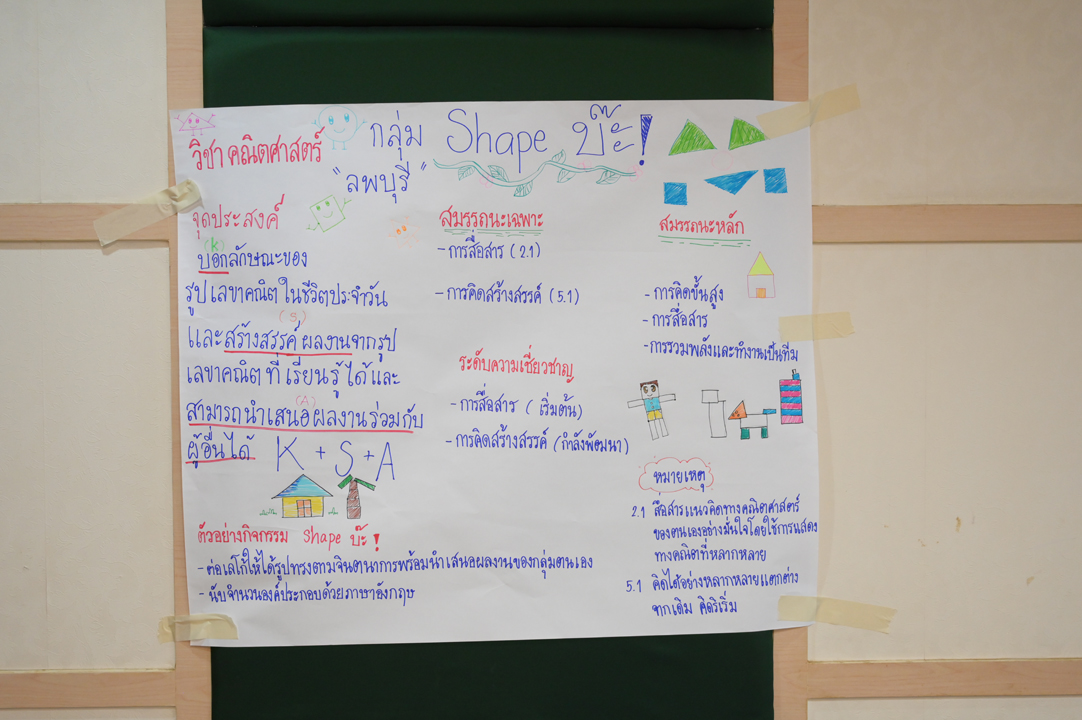 วิชา คณิตศาสตร์
กลุ่ม Shape บ๊ะ!
"ลพบุรี"
จุดประสงค์
(K)
บอกลักษณะของ
รูปเลขาคณิตในชีวิตประจำวัน
(S)
และสร้างสรรค์ผลงานจากรูป
เลขาคณิตที่เรียนรู้ได้และ
(A)
สามารถนำเสนอผลงานร่วมกับ
ผู้อื่นได้
K + S + A
สมรรถนะเฉพาะ
- การสื่อสาร (2.1)
- การคิดสร้างสรรค์ (5.1)
ระดับความเชี่ยวชาญ
- การสื่อสาร (เริ่มต้น)
- การคิดสร้างสรรค์ (กำลังพัฒนา)
สมรรถนะหลัก
- การคิดขั้นสูง
- การสื่อสาร
- การรวมพลังและทำงานเป็นทีม
หมายเหตุ
2.1 สื่อสารแนวคิดทางคณิตศาสตร์
ของตนเองอย่างมั่นใจโดยใช้การแสดง
ทางคณิตที่หลากหลาย
5.1 คิดได้อย่างหลากหลายแตกต่าง
จากเดิม คิดริเริ่ม
ตัวอย่างกิจกรรม Shape บ๊ะ!
- ต่อเลโก้ให้ได้รูปทรงตามจินตนาการพร้อมนำเสนอผลงานของกลุ่มตนเอง
- นับจำนวนองค์ประกอบด้วยภาษาอังกฤษ